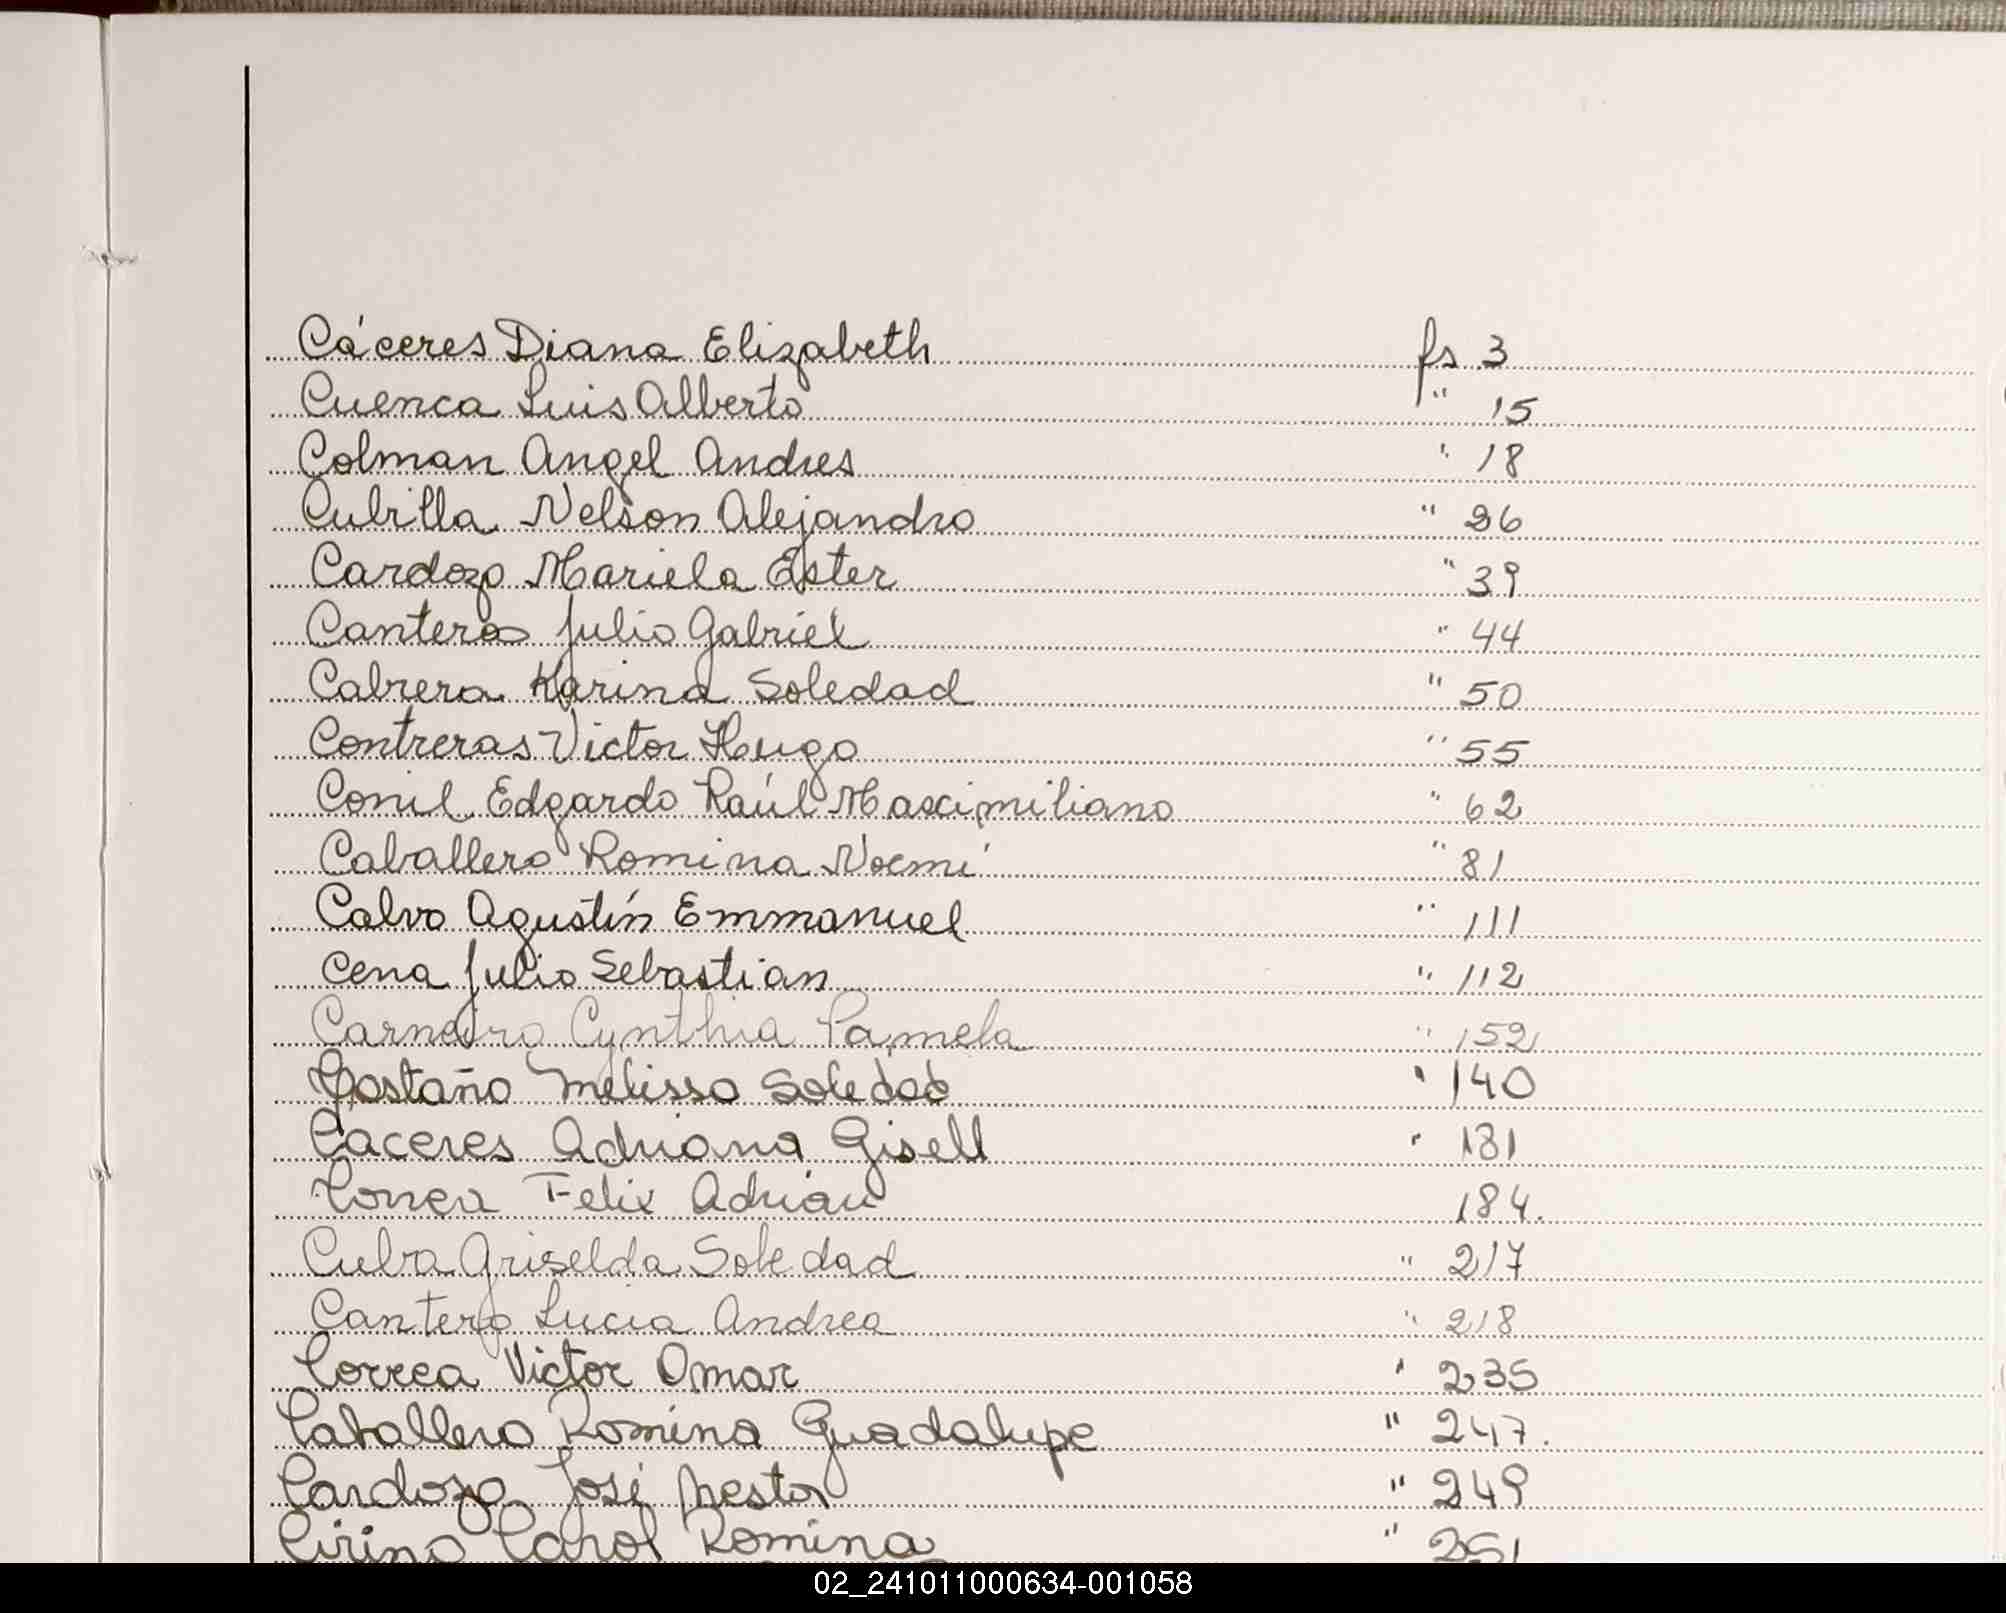 Cáceres Diana Elizabeth fs 3
Cuenca Luis Alberto " 15
Colman Angel Andres " 18
Cubilla Nelson Alejandro " 26
Cardozo Mariela Ester " 39
Canteros Julio Gabriel " 44
Cabrera Karina Soledad " 50
Contreras Victor Hugo " 55
Conil Edgardo Raúl Maximiliano " 62
Caballero Romina Noemí " 81
Calvo Agustín Emmanuel " 111
Cena Julio Sebastian " 112
Carneiro Cynthia Pamela " 152
Castaño Melissa Soledad " 140
Caceres Adriana Gisell " 181
Correa Felix Adrián 184.
Cuba Griselda Soledad " 217
Cantero Lucia Andrea " 218
Correa Victor Omar " 235
Caballero Romina Guadalupe " 247.
Cardozo José Nestor " 249
Cirino Carol Romina " 251
02_241011000634-001058